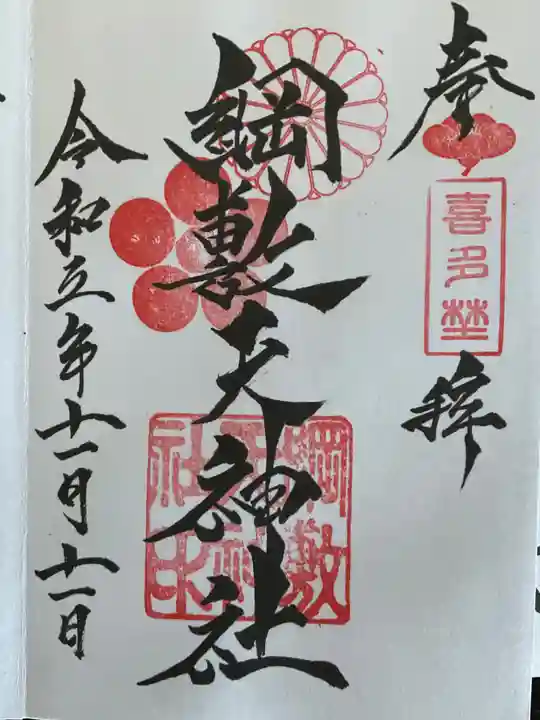 奉拝
喜多埜
綱敷天神社
綱敷天神社印
令和五年十一月十一日